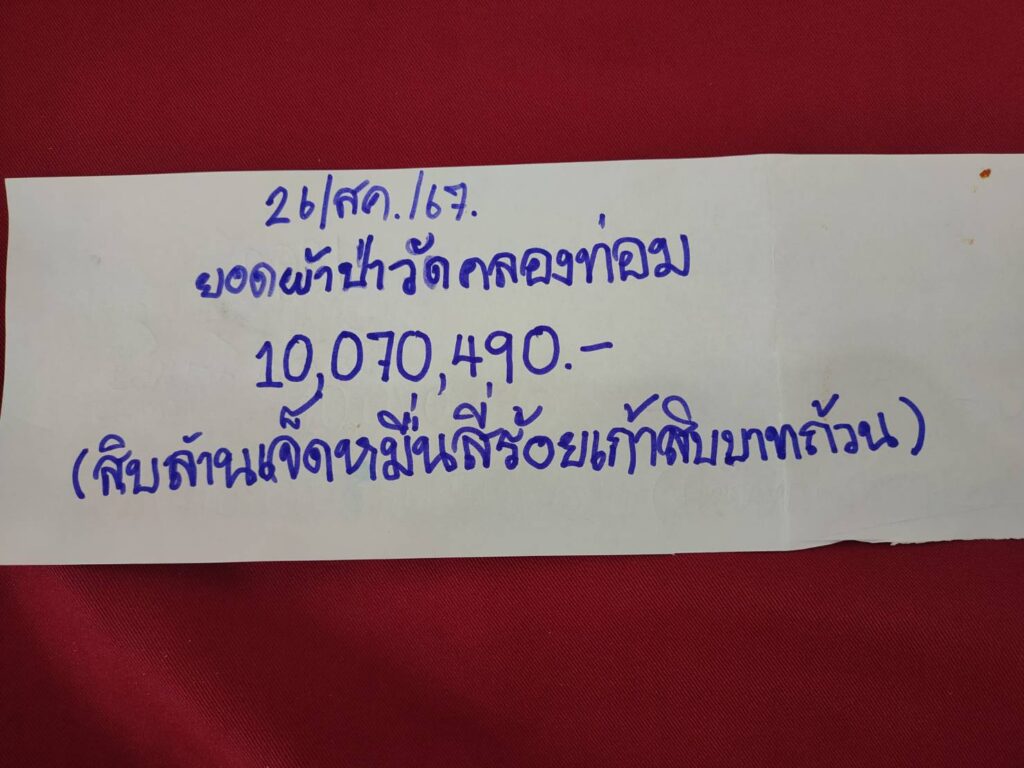 26/สค./67.
ยอดผ้าป่าวัดคลองท่อม
10,070,490.-
(สิบล้านเจ็ดหมื่นสี่ร้อยเก้าสิบบาทถ้วน)